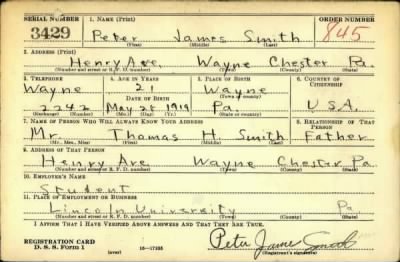 SERIAL NUMBER 1. NAME (Print) ORDER NUMBER
3429 Peter James Smith 845
(First) (Middle) (Last)
2. ADDRESS (Print)
Henry Ave. Wayne Chester Pa.
(Number and street or R. F. D. number) (Town) (County) (State)
3. TELEPHONE 4. AGE IN YEARS 5. PLACE OF BIRTH 6. COUNTRY OF CITIZENSHIP
Wayne 21 Wayne
DATE OF BIRTH (Town or county)
2242 May 28 1919 Pa. U.S.A.
(Exchange) (Number) (Mo.) (Day) (Yr.) (State or country)
7. NAME OF PERSON WHO WILL ALWAYS KNOW YOUR ADDRESS 8. RELATIONSHIP OF THAT PERSON
Mr. Thomas H. Smith Father
(Mr., Mrs., Miss) (First) (Middle) (Last)
9. ADDRESS OF THAT PERSON
Henry Ave Wayne Chester Pa.
(Number and street or R. F. D. number) (Town) (County) (State)
10. EMPLOYER'S NAME
Student
11. PLACE OF EMPLOYMENT OR BUSINESS
Lincoln University Pa
(Number and street or R. F. D. number) (Town) (County) (State)
I AFFIRM THAT I HAVE VERIFIED ABOVE ANSWERS AND THAT THEY ARE TRUE.
REGISTRATION CARD
D. S. S. Form 1 (over) 16-17105 Peter James Smith
(Registrant's signature)